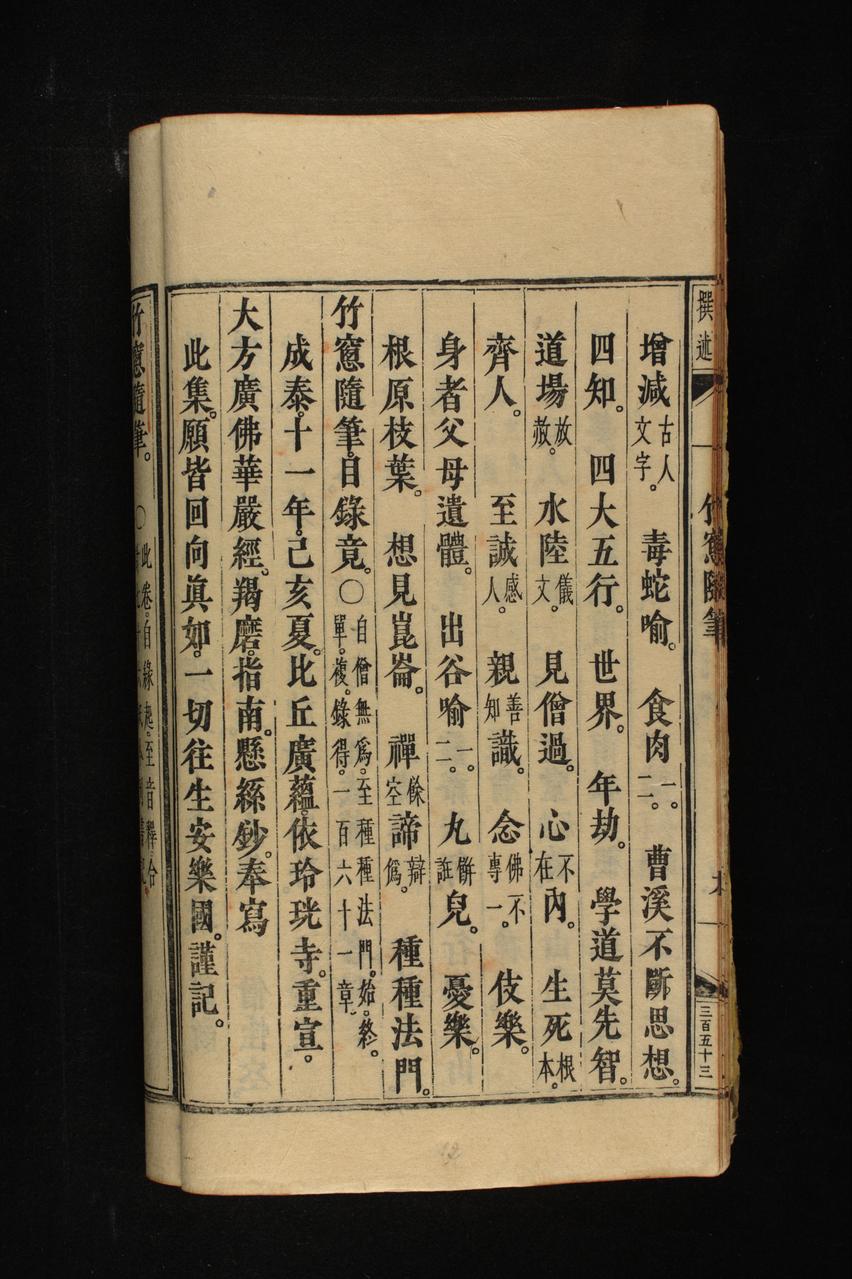 撰述 一 竹窻隨筆 三百五十三
增減古人文字。 毒蛇喻。 食肉一。二。 曹溪不斷思想。
四知。 四大五行。 世界。 年劫。 學道莫先智。
道場放赦。 水陸儀文。 見僧過。 心不在內。 生死根本。
齊人。 至誠感人。 親善知識。 念佛不專一。 伎樂。
身者父母遺體。 出谷喻一。二。 九兒。 憂樂。
根原枝葉。 想見崑崙。 禪餘空諦辯僞。 種種法門。
竹窻隨筆。目錄竟。〇自僧無爲。至種種法門。始。終。單。複。錄得。一百六十一章。
成泰。十一年。己亥夏。比丘廣蘊。依玲珖寺。重宣。
大方廣佛華嚴經。羯磨。指南。懸絲鈔。奉寫
此集。願皆回向眞如。一切往生安樂國。謹記。
竹窻隨筆。 〇此卷。自緣起。至音釋合